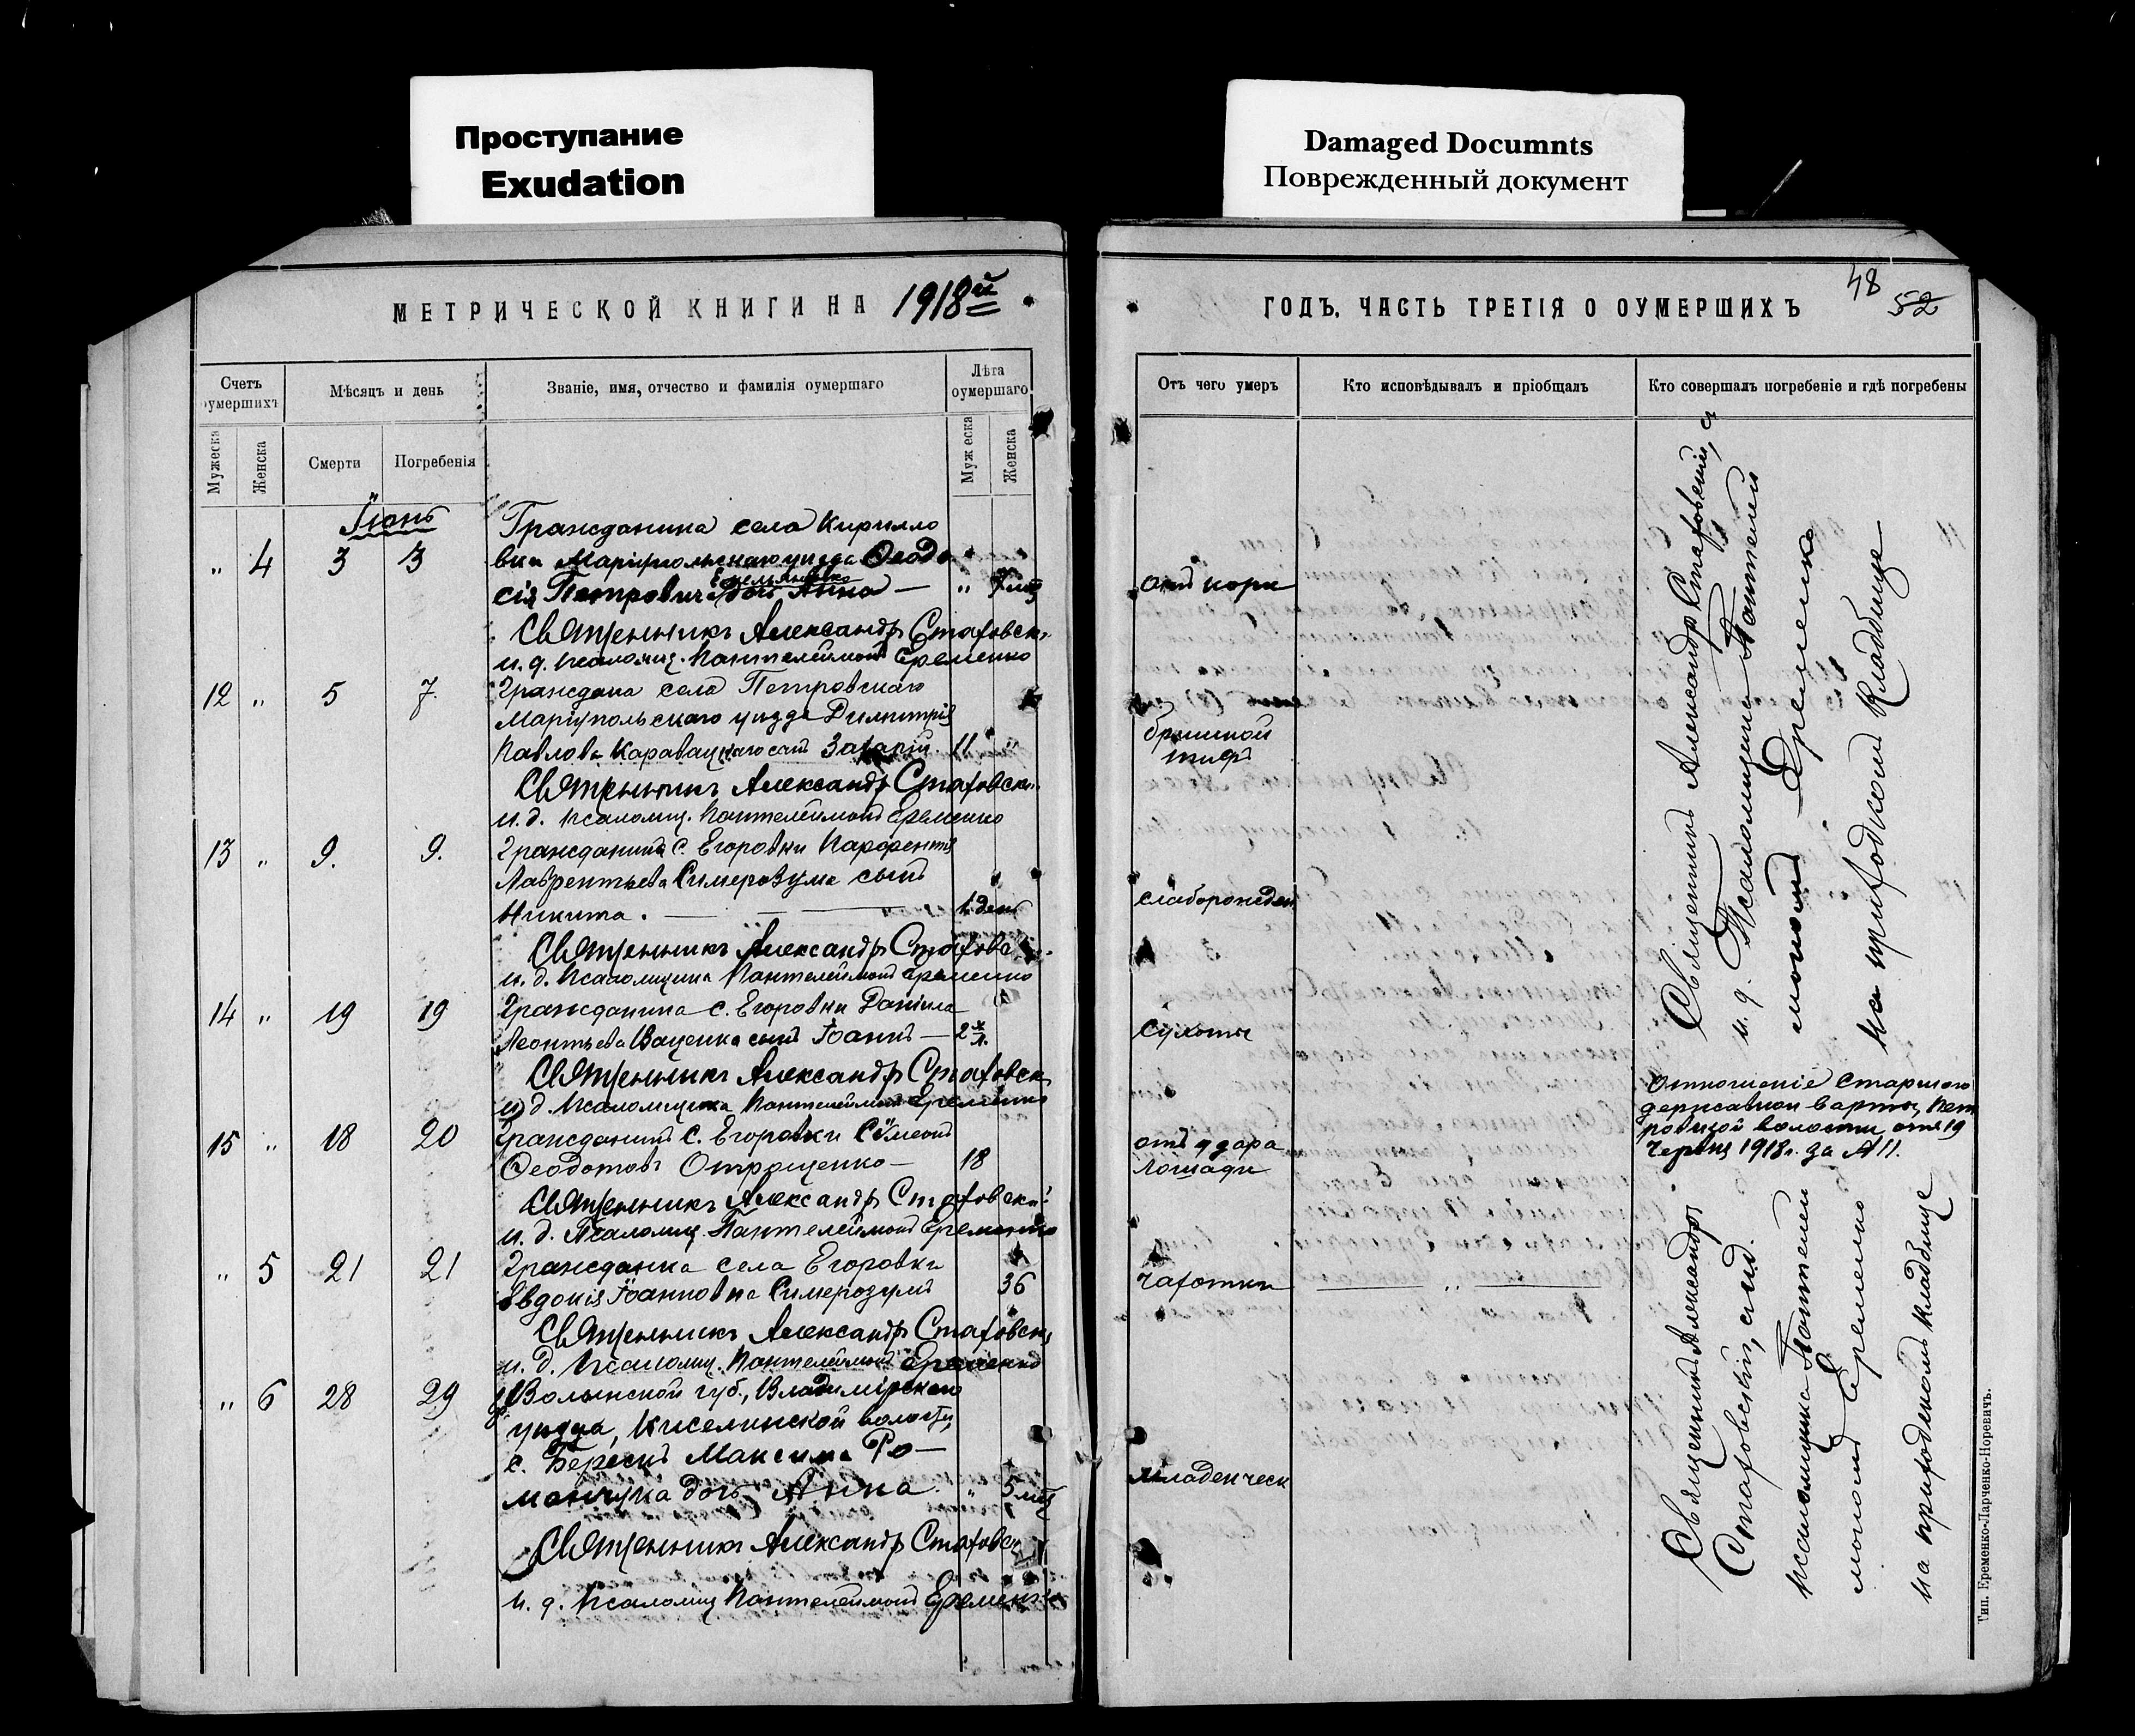 Проступание
Exudation
Damaged Documnts
Поврежденный документ
МЕТРИЧЕСКОЙ КНИГИ НА 1918й
Счетъ умершихъ
Мѣсяцъ и день
Званіе, имя, отчество и фамилія оумершаго
Лѣта оумершаго
Мужеска
Женска
Смерти
Погребенія
Муж еска
Женска
Іюнь
Гражданина села Кирилло
" 4 3 3 вки Маріупольскаго уѣзда Ѳеодо
Емельяненко
сія Петровича дочь Анна — "
Священникъ Александръ Стаховск
и. д. псаломщ. Пантелеймонъ Еременко
12 " 5 7. Граждана села Петровскаго
Маріупольскаго уѣзда Димитрія
Павлова Каравацкаго сынъ Захарій 11 "
Священникъ Александръ Стаховск
и. д. псаломщ. Пантелеймонъ Еременко
13 " 9. 9. Гражданина с. Егоровки Парфентія
Лаврентьева Симерозума сынъ
Никита. — 1 день
Священникъ Александръ Стаховс
и. д. псаломщика Пантелеймонъ Еременко
14 " 19 19 Гражданина с. Егоровки Даніила
Леонтьева Ваценка сынъ Іоаннъ — 2
Священникъ Александръ Стаховск
и. д. псаломщика Пантелеймонъ Еременко
15 " 18 20 Гражданинъ с. Егоровки Сѵмеонъ
Ѳеодотовъ Отрощенко — 18
Священникъ Александръ Стаховскій
и. д. Псаломщ. Пантелеймонъ Еременко
" 5 21 21 Гражданка села Егоровки
Евдокія Іоанновна Симерозумъ 36
Священникъ Александръ Стаховск
и. д. псаломщ. Пантелеймонъ Еременко
" 6 28 29 Волынской губ., Владимірскаго
уѣзда, Киселинской волости,
с. Берескъ Максима Ро—
манчука дочь Анна " 5
Священникъ Александръ Стаховск
и. д. псаломщ Пантелеймонъ Еременко
ГОДЪ. ЧАСТЬ ТРЕТІЯ О ОУМЕРШИХЪ
48
52
Отъ чего умеръ
Кто исповѣдывалъ и пріобщалъ
Кто совершалъ погребеніе и гдѣ погребены
отъ кори
брюшной
тифъ
слаборожден
Сухоты
отъ удара
лошади
Чахотки — " —
младенческ
Священникъ Александръ Стаховскій, съ
и. д. Псаломщика Пантелей
мономъ Еременко
на приходскомъ кладбище
Отношеніе Старшого
державной варты, Пет
ровской волости, отъ 19
Червня 1918 г. за № 11.
Священникъ Александръ
Стаховскій, съ и.д.
псаломщика Пантелей
мономъ Еременко
на приходскомъ кладбище
Тип. Еременко-Ларченко-Норевичъ.